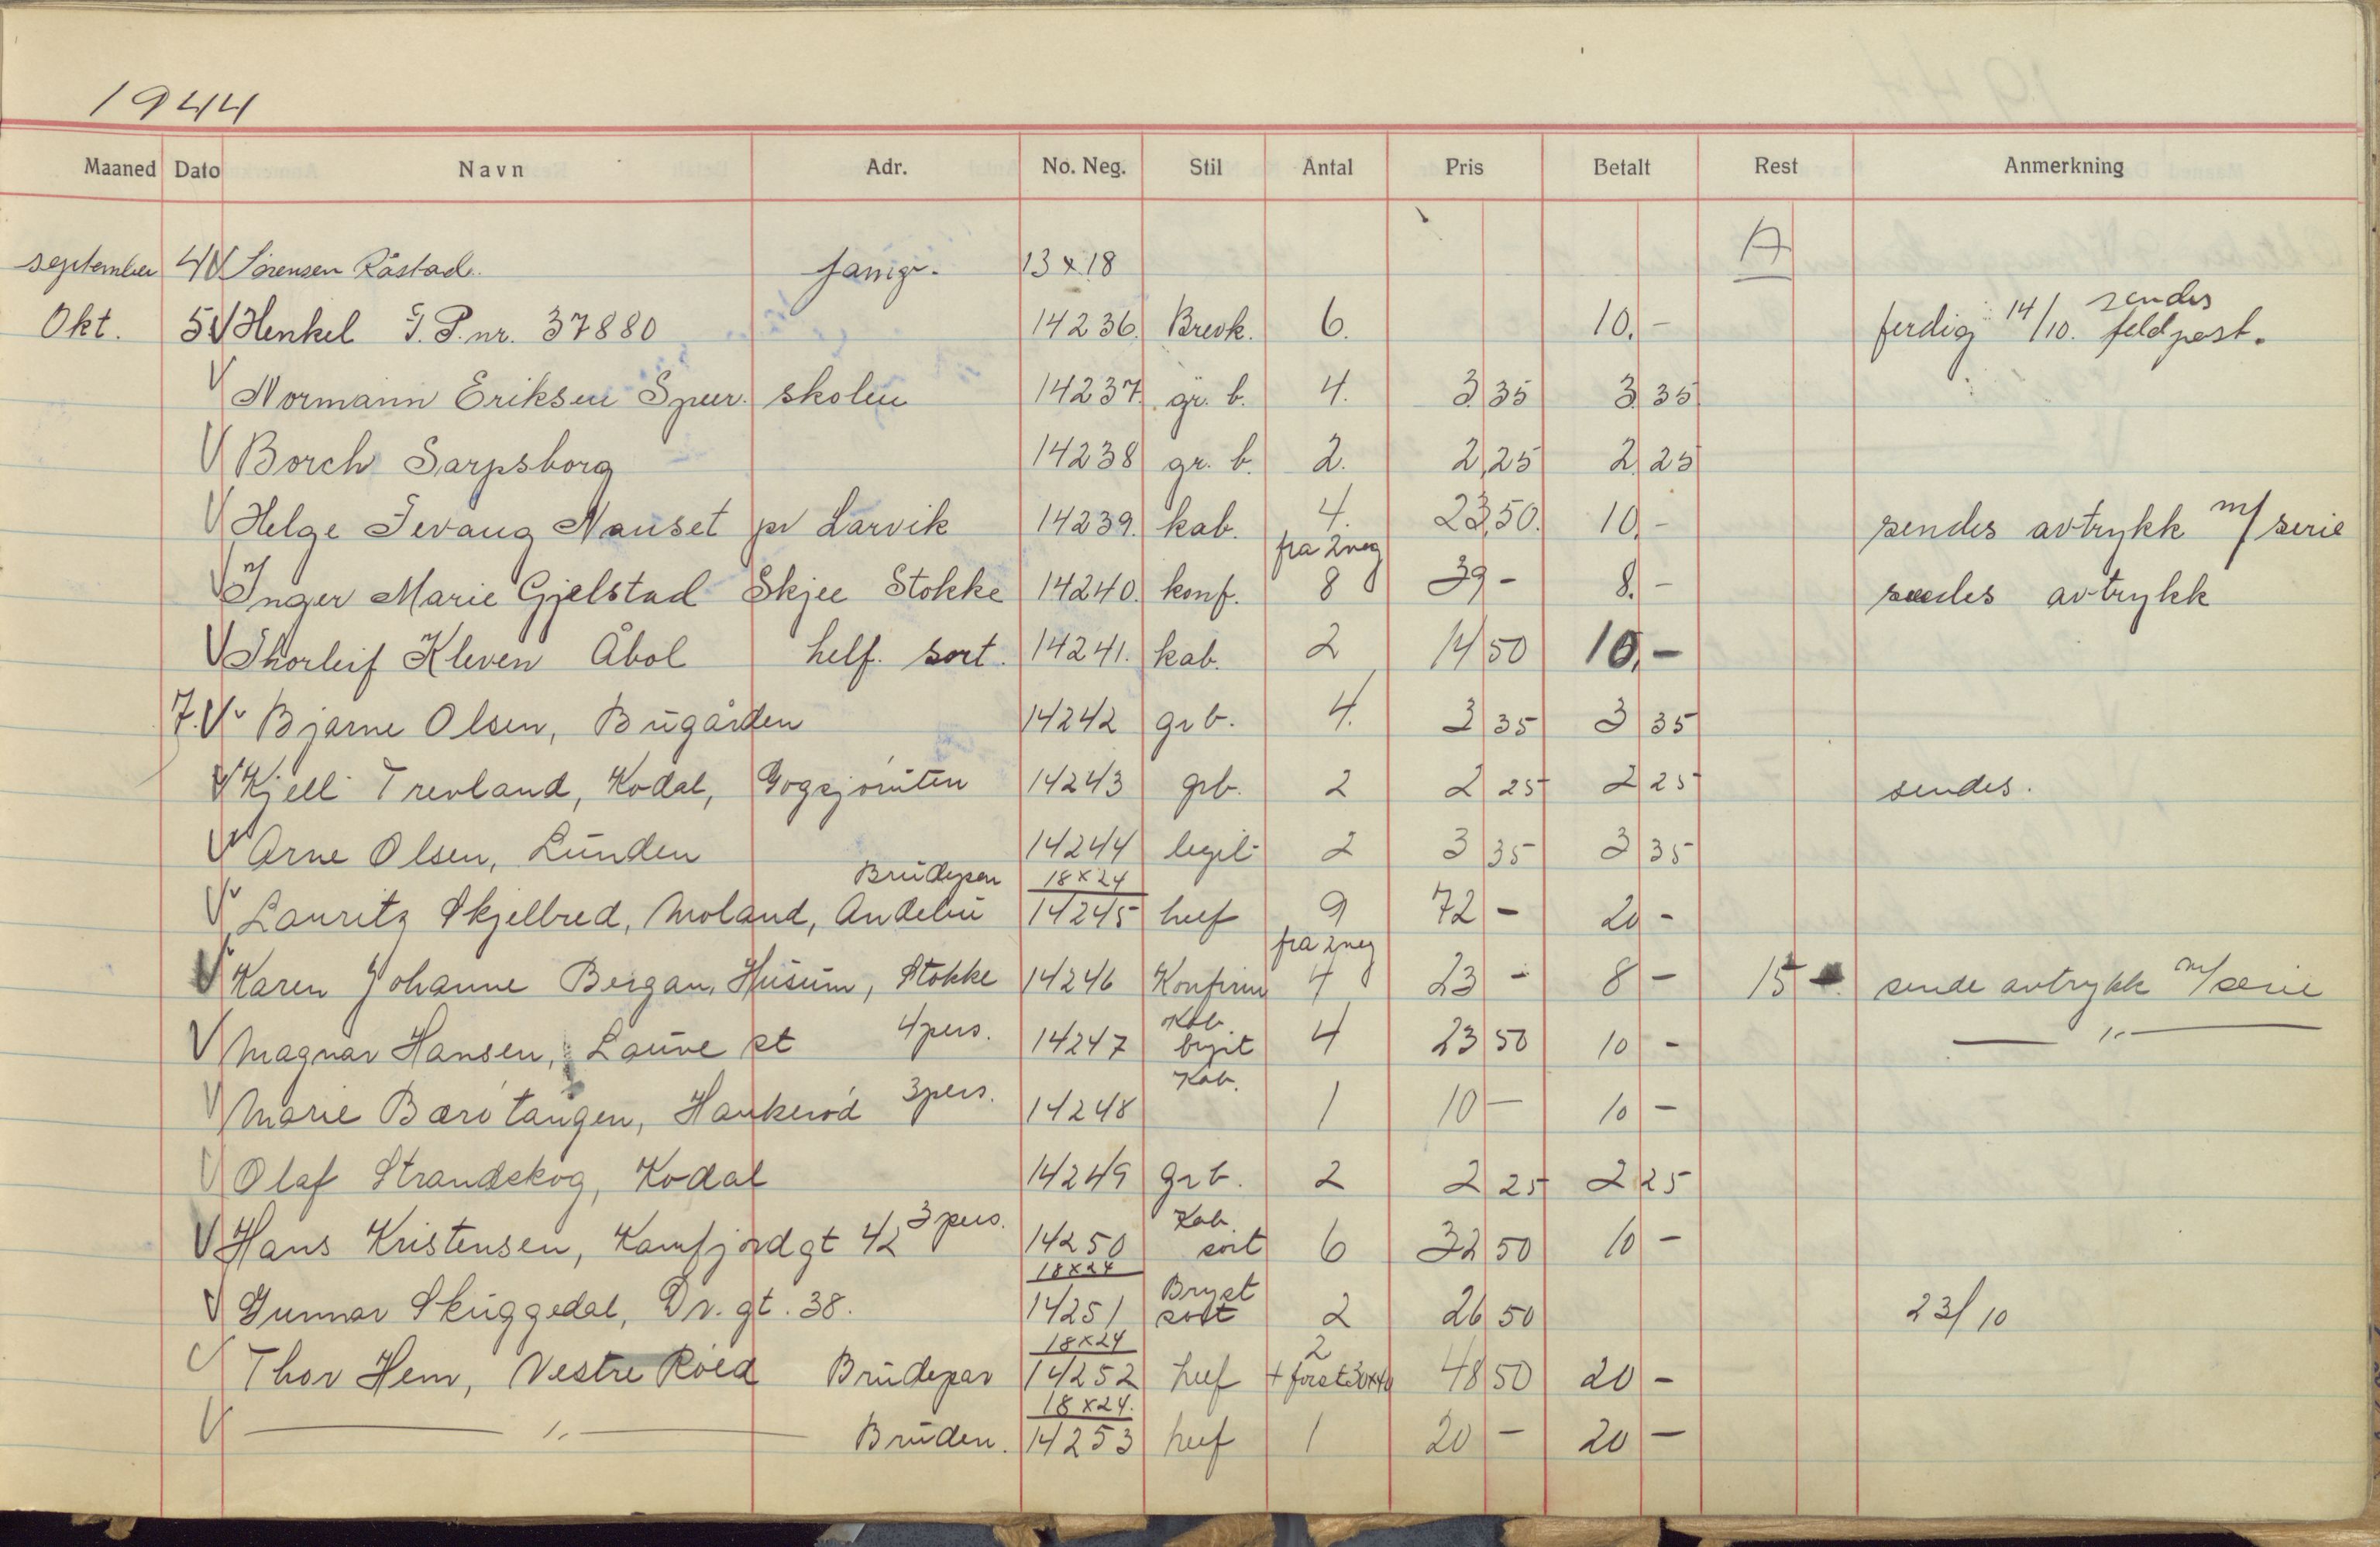 1944
Maaned Dato Navn Adr. No. Neg. Stil Antal Pris Betalt Rest Anmerkning
september 4 V Sørensen Råstad. 13 x 18 A
Okt. 5 V Henkel F. P. nr. 37880 14236. Brevk. 6. 10.- ferdig 14/10. sendes feldpost.
V Normann Eriksen skolen 14237. gr. b. 4. 3 35 3 35
V Borch Sarpsborg 14238 gr. b. 2. 2,25 2 25
V Helge Tevang Nauset pr Larvik 14239. kab. 4. 23,50. 10.- sendes avtrykk m/ serie
V Inger Marie Gjelstad Skjee Stokke 14240. konf. fra 2 neg 8 39 - 8.- sendes avtrykk
V Thorleif Kleven Åbol helf. sort. 14241. kab. 2 14 50 10.-
7. V Bjarne Olsen, Bugården 14242 gr b. 4. 3 35 3 35
V Kjell Trevland, Kodal, 14243 grb. 2 2 25 2 25 sendes.
V Arne Olsen, Lunden 14244 legit 2 3 35 3 35
V Lauritz Skjelbred, Moland, Andebu Brudepar 18 x 24 14245 helf 9 72 - 20 -
V Karen Johanne Bergan, Husum, Stokke 14246 Konfirm fra 2 neg 4 23 - 8 - 15 - sende avtrykk m/ serie
V Magnar Hansen, Lauve st 4 pers. 14247 Kab bryst 4 23 50 10 - — " —
V Marie Bærøtangen, Haukerød 3 pers. 14248 Kab. 1 10 - 10 -
V Olaf Strandskog, Kodal 14249 gr b. 2 2 25 2 25
V Hans Kristensen, Kamfjordgt 42 3 pers. 14250 Kab. sort 6 32 50 10 -
V Gunnar Skuggedal, Dr. gt. 38. 18 x 24 14251 Bryst sort 2 26 50 23/10
V Thor Hem, Vestre Røed Brudepar 18 x 24 14252 helf 2 + forst 30x40 48 50 20 -
V — " — Bruden. 18 x 24. 14253 helf 1 20 - 20 -